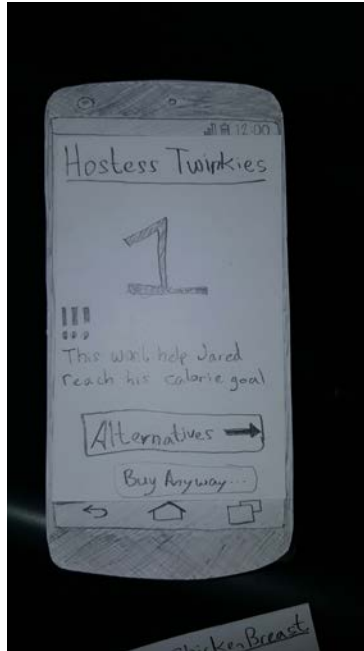 12:00
Hostess Twinkies
1
!!!
This won't help Jared
reach his calorie goal
Alternatives
Buy Anyway...
Chicken Breast